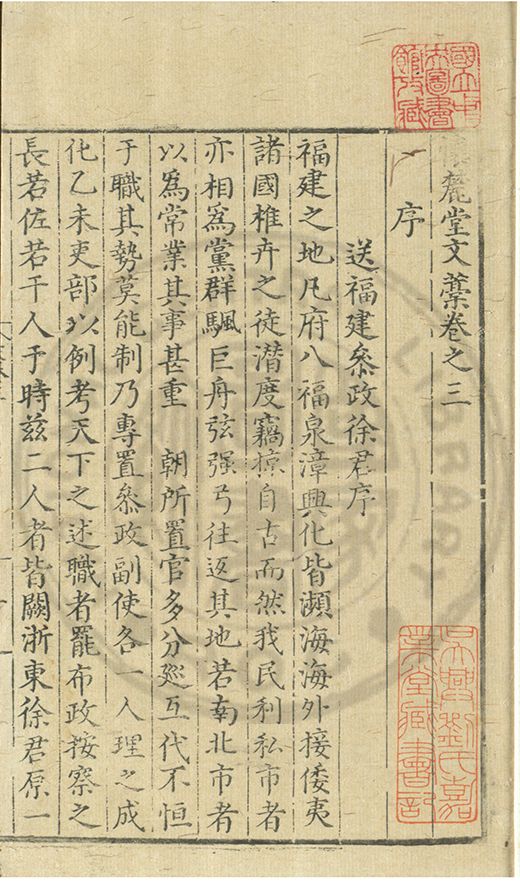 國立中
央圖書
館收藏
麓堂文藁卷之三
序
送福建叅政徐君序
福建之地凡府八福泉漳興化皆瀕海海外接倭夷
諸國椎卉之徒潛度竊掠自古而然我民利私市者
亦相爲黨群颿巨舟弦强弓往返其地若南北市者
以爲常業其事甚重　朝所置官多分廵互代不恒
于職其勢莫能制乃專置叅政副使各一人理之成
化乙未吏部以例考天下之述職者罷布政按察之
長若佐若干人于時兹二人者皆闕浙東徐君原一
吳興劉氏嘉
業堂藏書記